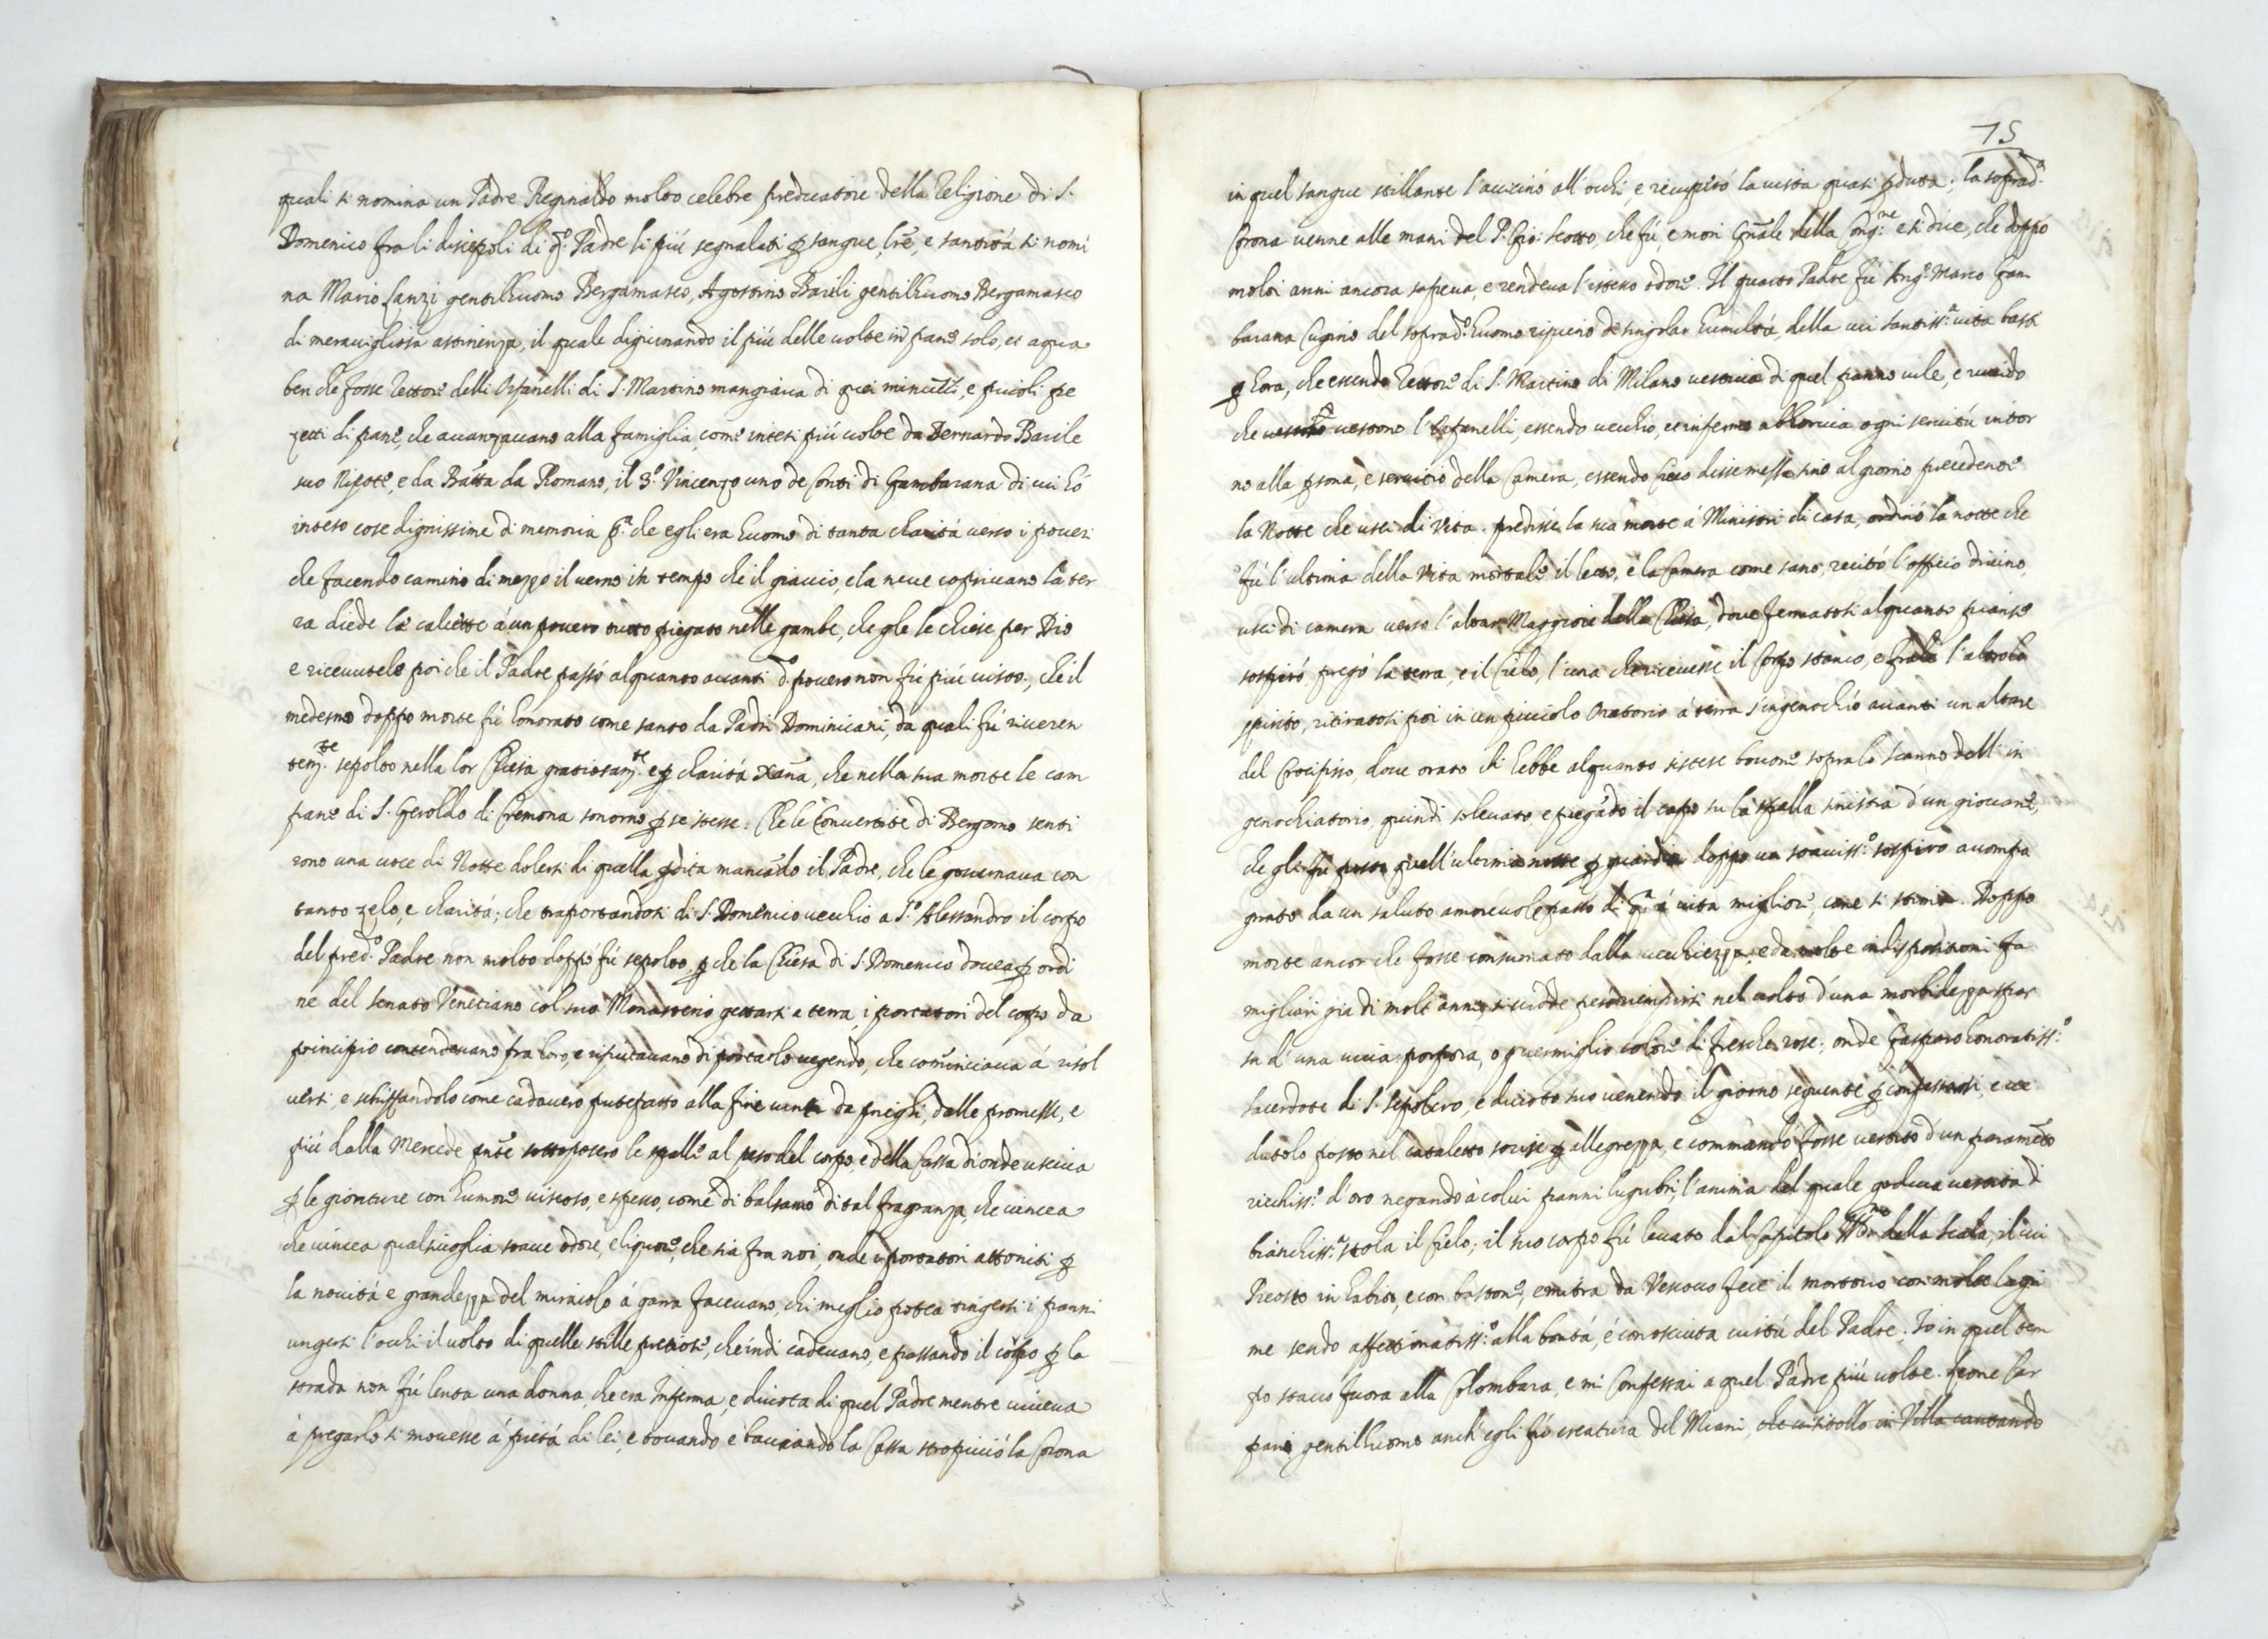 quali si nomina un Padre Reginaldo molto celebre predicatore della Religione di S.
Domenico fra li discepoli di q.o Padre li più segnalati ꝑ sangue, lr̃e, e santità si nomi
na Mario Lanzi gentilhuomo Bergamasco, Agostino Barili gentilhuomo Bergamasco
di meravigliosa astinenza, il quale digiunando il più delle volte in pane solo, et aqua
ben che fosse Rettore delli Orfanelli di S. Martino mangiava di quei minutti, e piccoli pe
zetti di pane, che avanzavano alla famiglia, come intesi più volte da Bernardo Barile
suo Nipote, e da Batta da Romano, il 3.o Vincenzo uno de Conti di Gambarana di cui hò
inteso cose dignissime di memoria p.a che egli era huomo di tanta charità verso i poveri
che facendo camino di mezzo il verno in tempo che il giaccio, e la neve coprivano la ter
ra diede le calcette à un povero tutto piegato nelle gambe, che gle le chiese per Dio
e ricevutele poi che il Padre passò alquanto avanti d.o povero non fù più visto, che il
medesmo doppo morte fù honorato come santo da Padri Dominicani, da quali fù riveren
tem.te sepolto nella lor Chiesa gratiosam.te e ꝑ charità xana, che nella sua morte le cam
pane di S. Geroldo di Cremona sonorno ꝑ se stesse. Che le Convertite di Bergamo senti
rono una voce di Notte dolersi di quella ꝑdita mancãdo il Padre, che le governava con
tanto zelo, e charità; che traportandosi di S. Domenico vecchio a S.o Alessandro il corpo
del pred.o Padre non molto doppò fù sepolto, ꝑ che la Chiesa di S. Domenico dovea ꝑ ordi
ne del senato Venetiano col suo Monasterio gettarsi a terra, i portatori del corpo da
principio contendevano fra loro, e rifiutavano di portarlo vegendo, che comĩnciava à risol
versi, e schiffandolo come cadavero putefatto alla fine vinti da prieghi, dalle promesse, e
più dalla Mercede sottoposero le spalle al peso del corpo, e della Cassa di onde usciva
ꝑ le gionture con humore viscoso, e spesso, come di balsamo di tal fragranza, che vincea
che vincea qualsivoglia soave odore, e liquore, che sia fra noi, onde i portatori attoniti ꝑ
la novità e grandezza del miracolo à gara facevano, chi meglio potea tingersi i panni
ungersi l'occhi il volto di quelle stille pretiose, che indi cadevano, e passando il corpo ꝑ la
strada non fù lenta una donna, che era Inferma, e divota di quel Padre mentre viveva
à pregarlo si movesse à pietà di lei, e tocando e bacciando la Cassa stropicciò la Corona
75
in quel sangue stillante l'avicinò all'occhi, e recuperò la vista quasi ꝑduta; la soprad.a
Corona venne alle mani del P. Gio: Scotto, che fù, e morì Gñale della Cong.ne e si dice, che doppo
molti anni ancora sapeva, e rendeva l'istesso odore. Il quarto Padre fù Ang.o Marco Gam
barana Cugino del soprad.o huomo ripieno de singolar humiltà, della cui santiss.a vita basti
ꝑ hora, che essendo Rettore di S. Martino di Milano vestiva di quel panno vile, e ruvido
che vestono l'Orfanelli, essendo vecchio, et infermo abhorriva ogni servitù intor
no alla ꝑsona, e servitio della Camera, essendo Cieco disse messa sino al giorno precedente
la Notte che uscì di vita. predisse la sua morte à Ministri di casa, ordinò la notte che
fù l'ultima della Vita mortale il letto, e la Camera come sano, recitò l'officio divino,
uscì di camera verso l'altar Maggiore della Chiesa, dove fermatosi alquanto pianse
sospirò, pregò la terra, e il Cielo, l'una che ricevesse il Corpo stanco, e l'altro lo
spirito, ritiratosi poi in un picciolo Oratorio à terra s'ingenochiò avanti un altare
del Crocifisso, dove orato ch'hebbe alquanto si stese boccone sopra lo scanno dell'in
genochiatorio, quindi solevato, e piegãdo il capo su la spalla sinistra d'un giovane,
che gli fù posto quell'ultima notte ꝑ guardia doppo un soaviss.o sospiro acompa
gnato da un saluto amorevole passò di q.a à vita migliore, come si stima. Doppo
morte ancor che fosse consumato dalla vecchiezza, e da molte indispositioni fa
migliari già di molti anni, si vidde però riempirsi nel volto d'una morbidezza spar
sa d'una viva porpora, o ꝑ vermiglio colore di fresche rose; onde Gasparo honoratiss.o
sacerdote di S. Sepolcro, e divoto suo venendo il giorno seguente ꝑ confessarsi, e ve
dutolo posto nel cataletto sorise ꝑ allegrezza, e commandò fosse vestito d'un paramẽto
ricchiss.o d'oro negando à colui panni lugubri, l'anima del quale godeva vestita di
bianchiss.a stola il Cielo; il suo corpo fù levato dal Capitolo della Scala, il cui
Preosto in habito, e con bastone, e mitra da Vescovo fece il mortorio con molte lagri
me sendo affettionatiss.o alla bontà, e conosciuta virtù del Padre. Io in quel tem
po stavo fuora alla Colombara, e mi Confessai a quel Padre più volte. Leone Car
pani gentilhuomo anch'egli fù creatura del Miani, che visitollo in Villa cantando